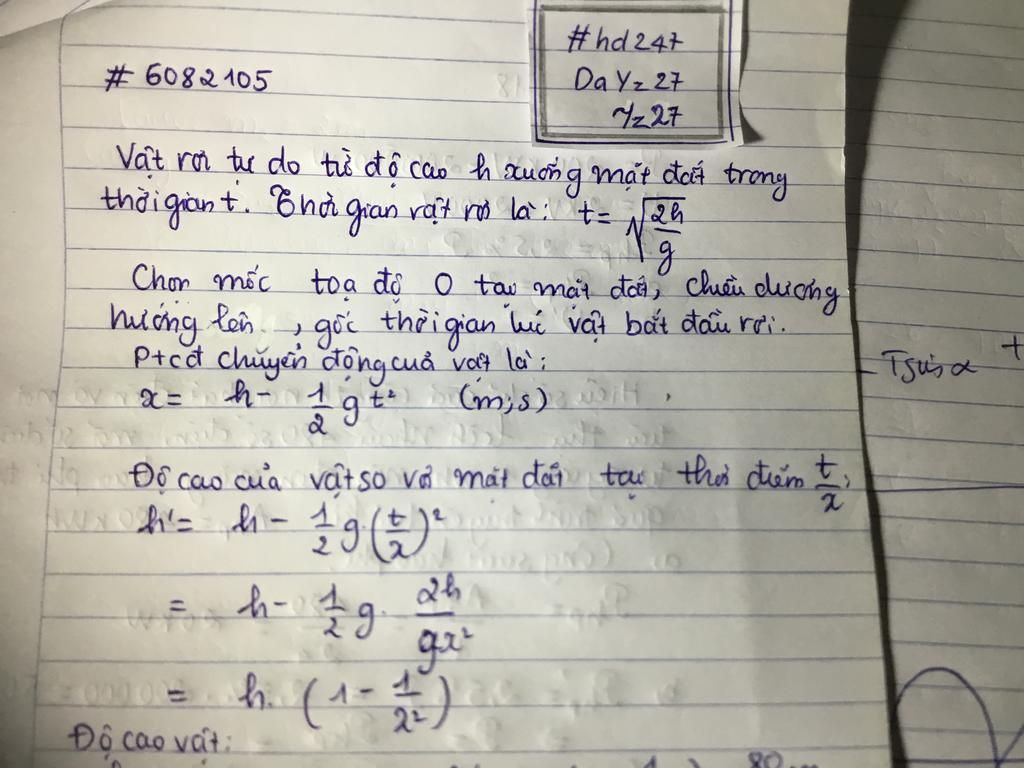 #hd247
DaYz27
Yz27
# 6082105
Vật rơi tự do từ độ cao h xuống mặt đất trong
thời gian t. Thời gian vật rơi là: t = √(2h/g)
Chọn mốc toạ độ O tại mặt đất, chiều dương
hướng lên, gốc thời gian lúc vật bắt đầu rơi.
Ptcđ chuyển động của vật là:
x = h - 1/2 g t² (m;s)
Độ cao của vật so với mặt đất tại thời điểm t/x:
h' = h - 1/2 g.(t/x)²
= h - 1/2 g. 2h/gx²
= h. (1 - 1/2²)
Độ cao vật:
Tsinα
+